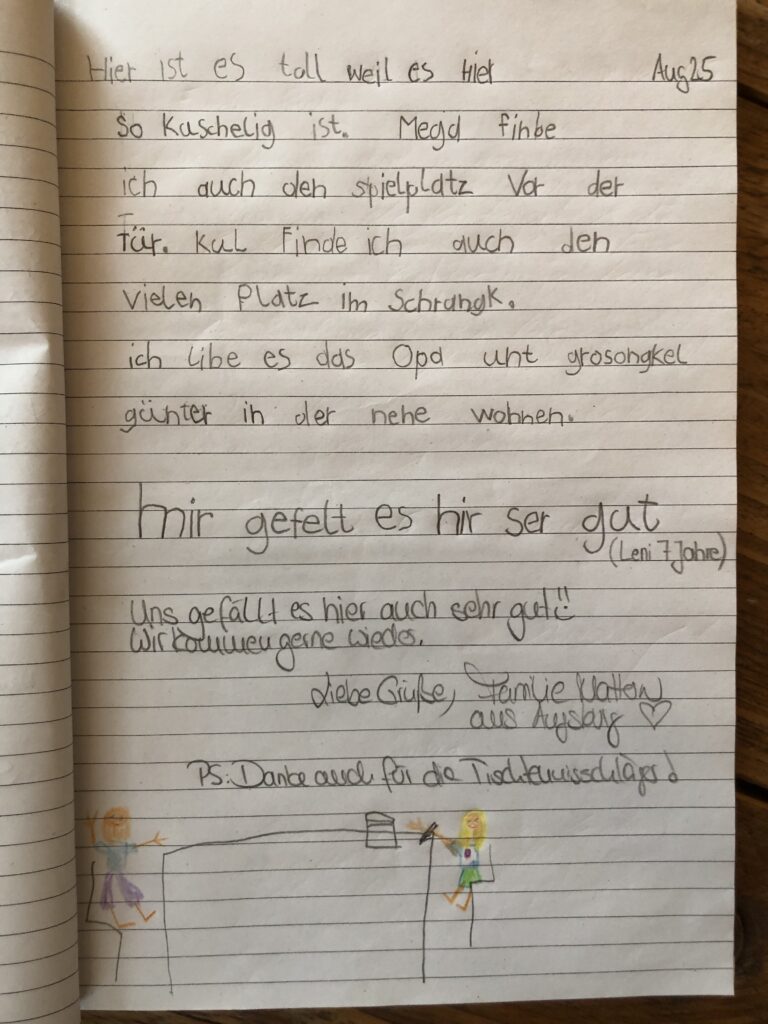 Hier ist es toll weil es Hier Aug 25
So Kuschelig ist. Megd finbe
ich auch den spielplatz Vor der
Tür. kul Finde ich auch den
vielen Platz im Schrangk.
ich libe es das Opa unt grosongkel
günter in der nehe wohnen.
mir gefelt es hir ser gut
(Leni 7 Jahre)
Uns gefällt es hier auch sehr gut!
Wir kommen gerne wieder.
Liebe Grüße, Familie
aus Augsburg ♡
PS: Danke auch für die Tischtennisschläger!